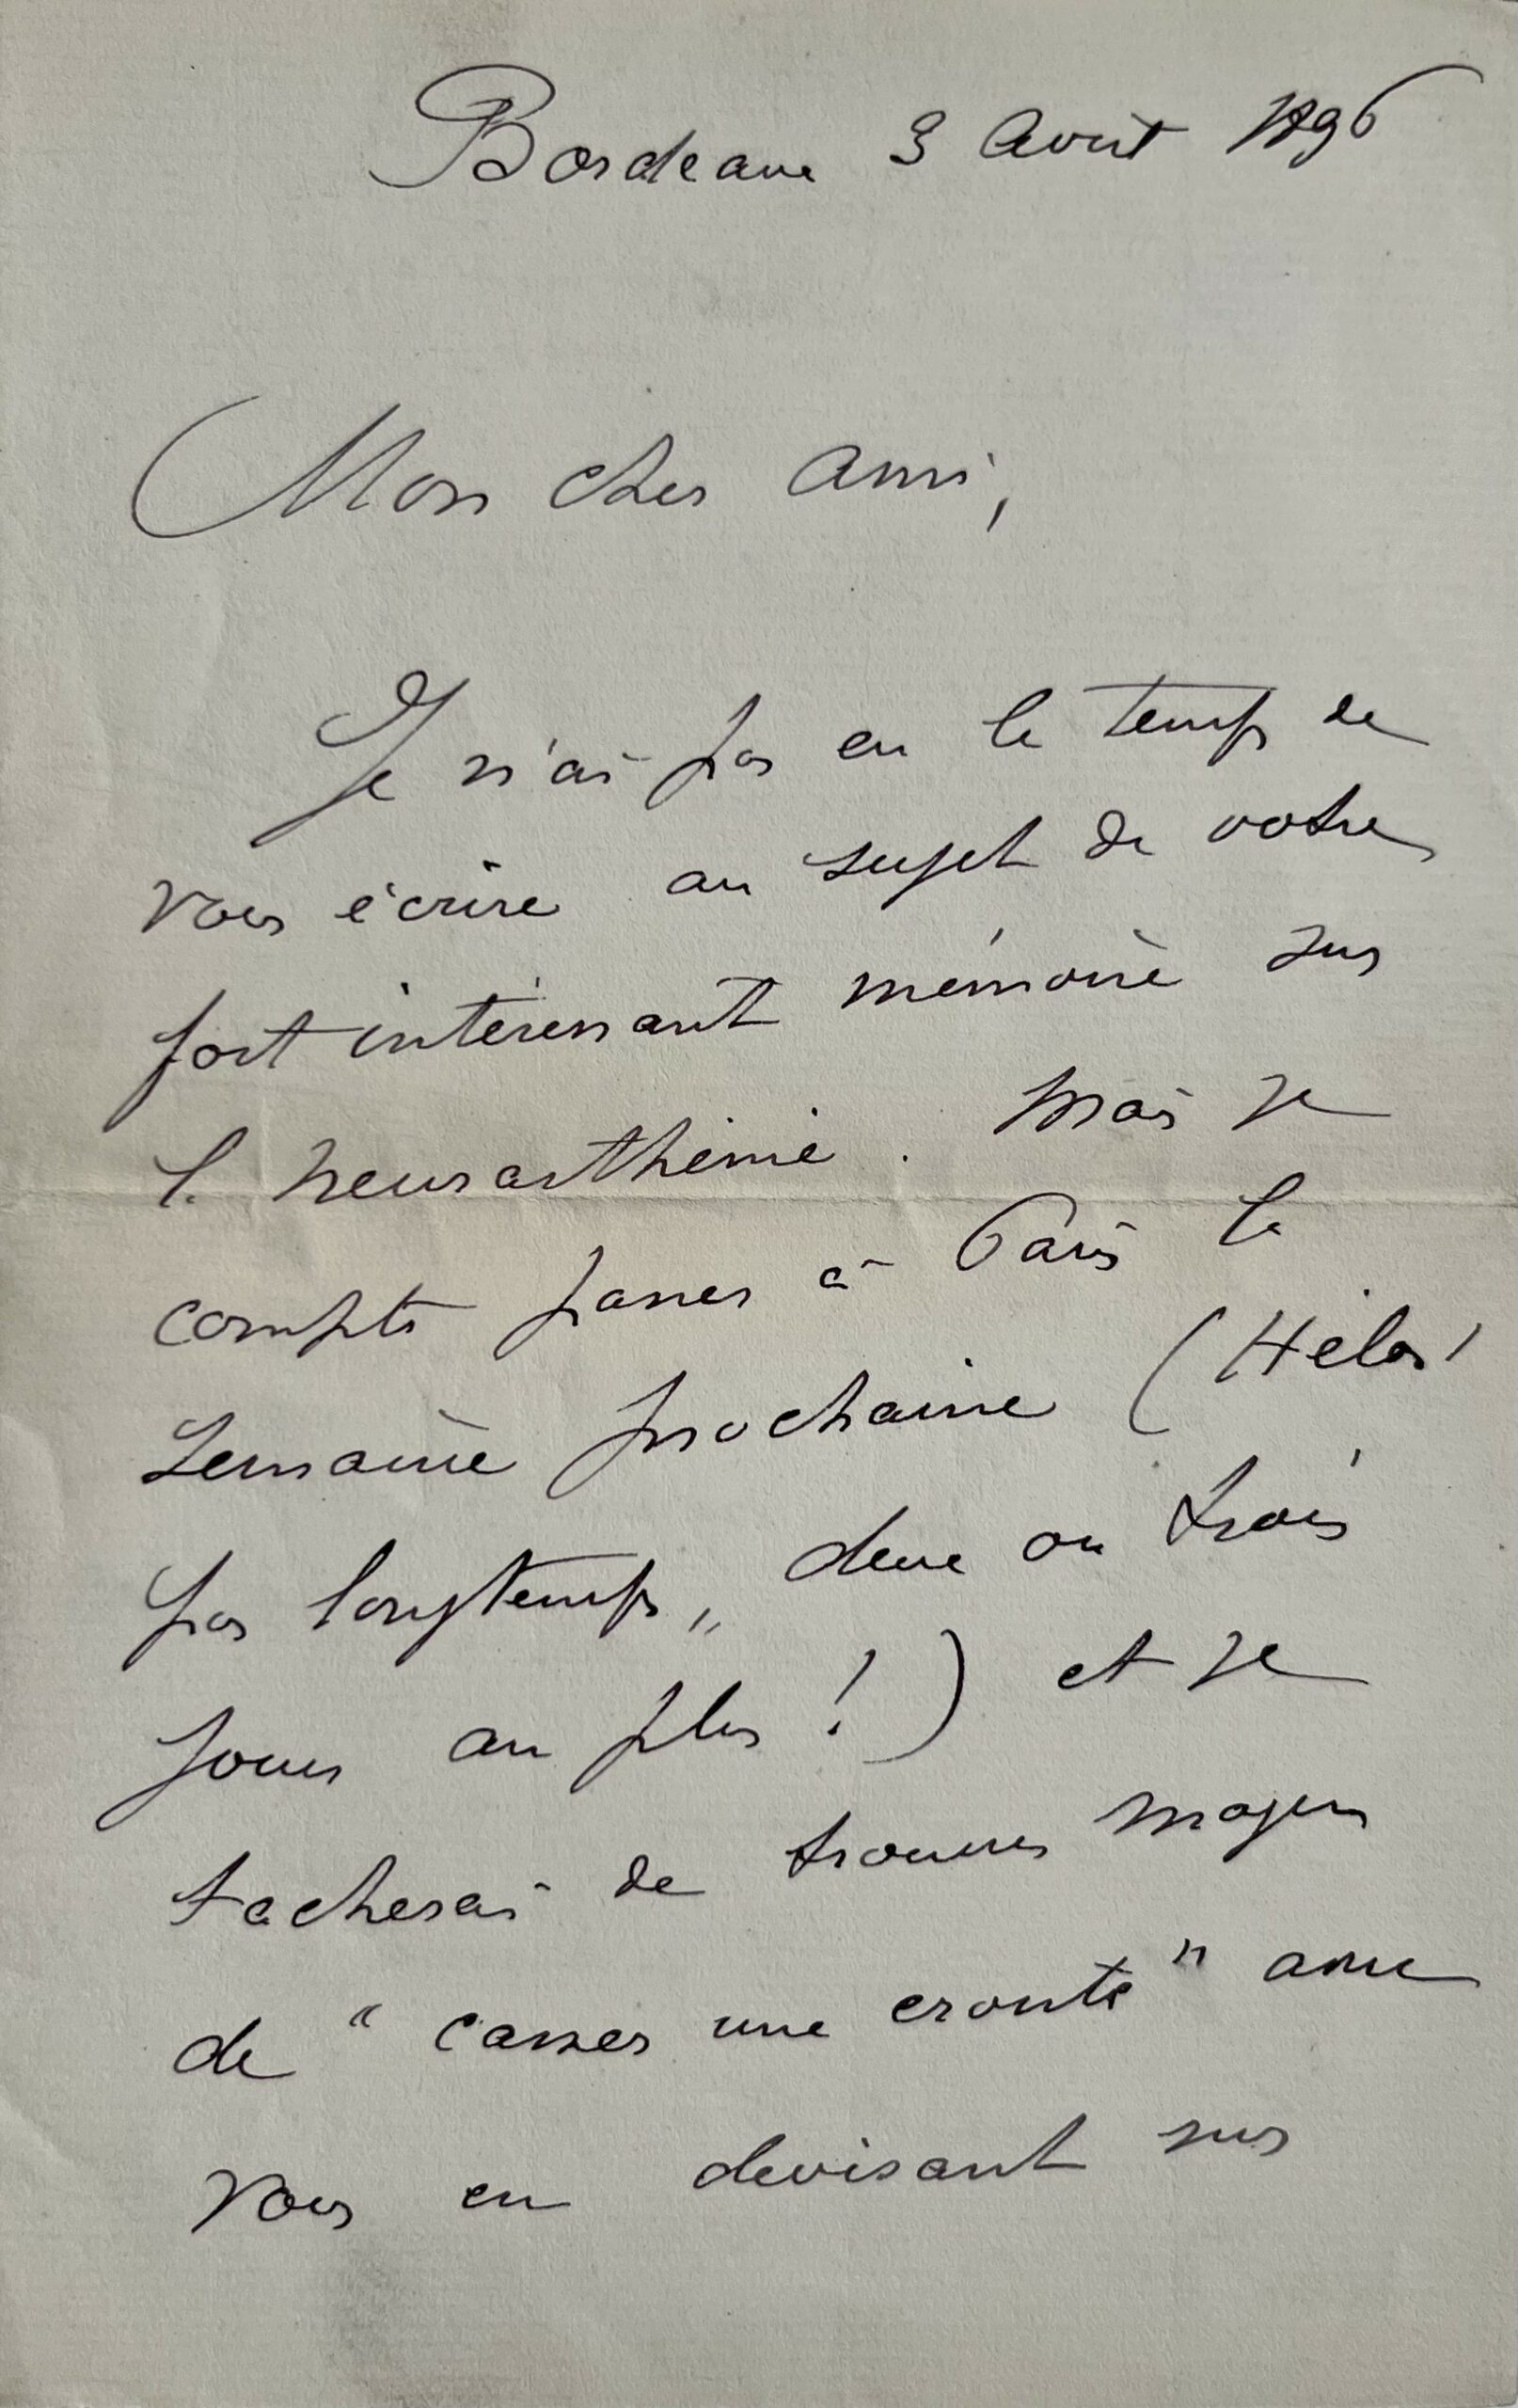 Bordeaux 3 Août 1896
Mon cher ami,
Je n'ai pas eu le temps de
vous écrire au sujet de votre
fort intéressant mémoire sur
la neurasthénie. Mais je
compte passer à Paris la
semaine prochaine (Hélas!
pas longtemps, deux ou trois
jours au plus!) et je
tacherai de trouver moyen
de "casser une croute" avec
vous en devisant sur